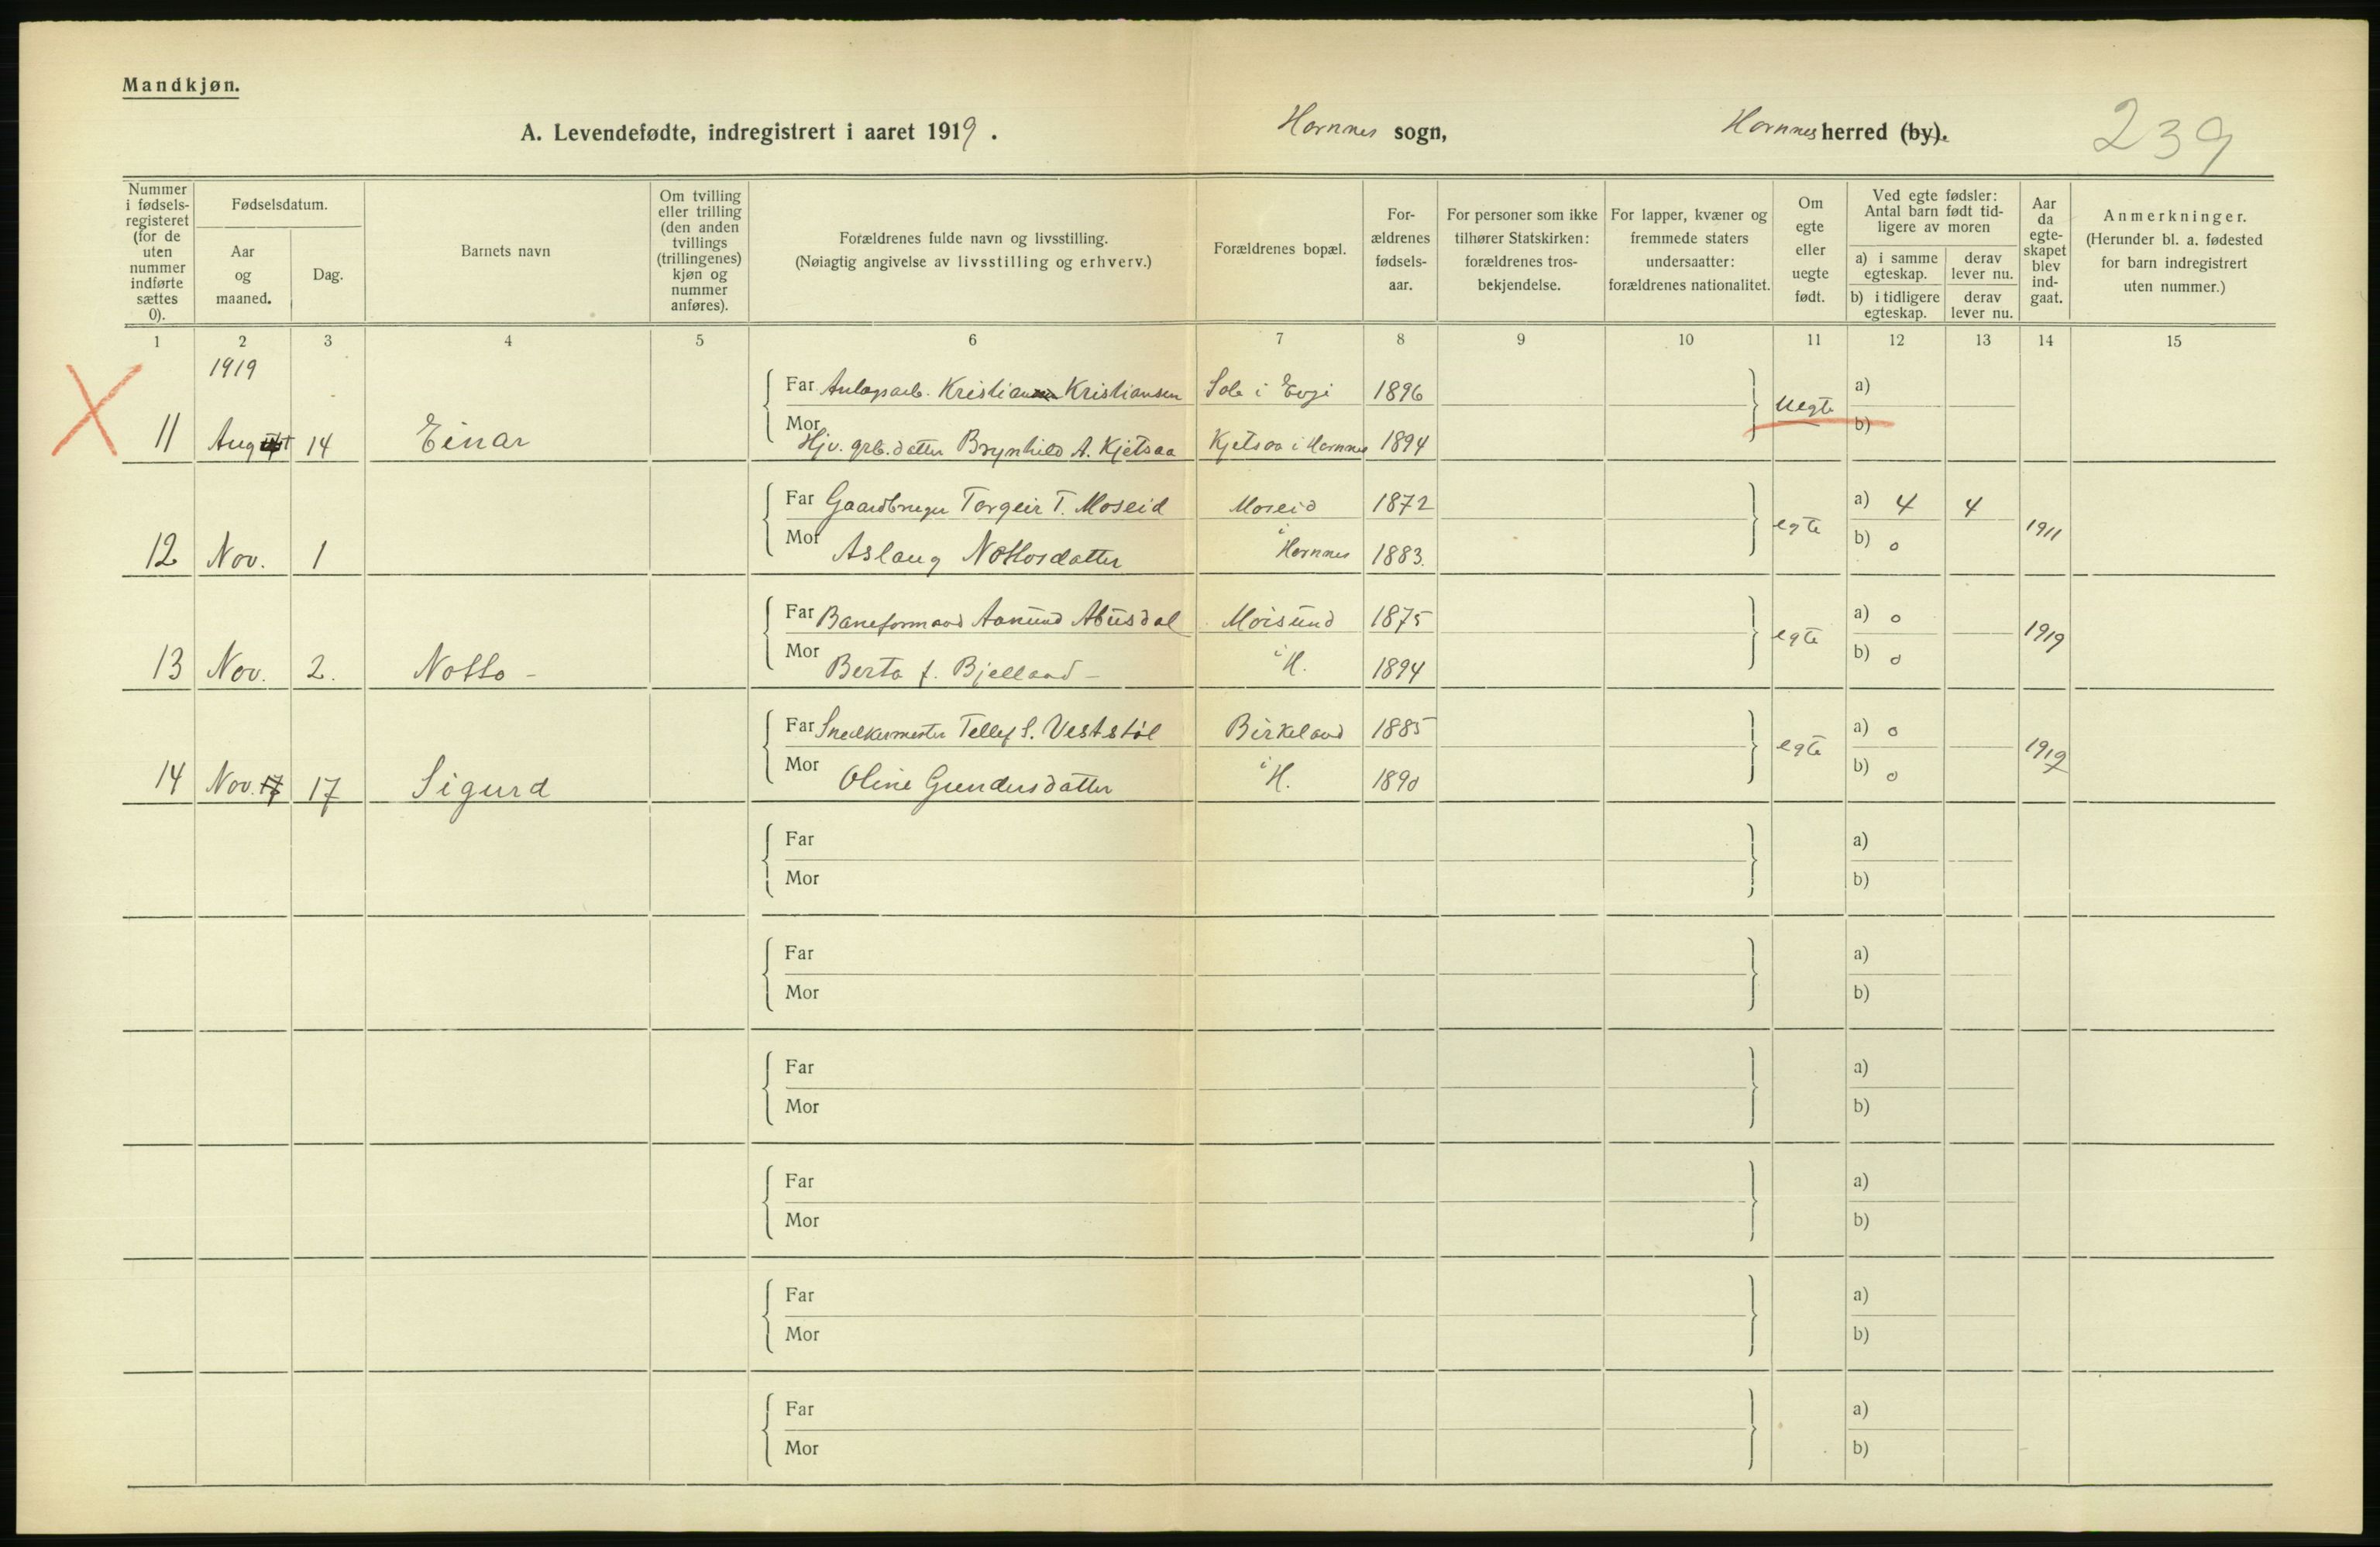 Mandkjøn.
A. Levendefødte, indregistrert i aaret 1919. Hornnes sogn, Hornnes herred (by). 239
Nummer i fødselsregisteret (for de uten nummer indførte sættes 0).
Fødselsdatum.
Aar og maaned.
Dag.
Barnets navn
Om tvilling eller trilling (den anden tvillings (trillingenes) kjøn og nummer anføres).
Forældrenes fulde navn og livsstilling.
(Nøiagtig angivelse av livsstilling og erhverv.)
Forældrenes bopæl.
Forældrenes fødselsaar.
For personer som ikke tilhører Statskirken: forældrenes trosbekjendelse.
For lapper, kvæner og fremmede staters undersaatter: forældrenes nationalitet.
Om egte eller uegte født.
Ved egte fødsler: Antal barn født tidligere av moren
a) i samme egteskap.
derav lever nu.
b) i tidligere egteskap.
derav lever nu.
Aar da egteskapet blev indgaat.
Anmerkninger.
(Herunder bl. a. fødested for barn indregistrert uten nummer.)
1 2 3 4 5 6 7 8 9 10 11 12 13 14 15
1919
Far Anlægsarb. Kristian Kristiansen i Evje 1896 Uegte a)
11 August 14 Einar Mor Hjv. grb.datter Brynhild A. Kjetsaa Kjetsaa i Hornnes 1894 b)
Far Gaardbruger Torgeir T. Moseid Moseid 1872 egte a) 4 4 1911
12 Nov. 1 Mor Aslaug Nottosdatter i Hornnes 1883. b) 0
Far Baneformand Aanund Abusdal Moisund 1875 egte a) 0 1919
13 Nov. 2. Notto - Mor Berta f. Bjelland - i H. 1894 b) 0
Far Snedkermester Tellef S. Vestøl Birkeland 1885 egte a) 0 1919
14 Nov. 17 17 Sigurd Mor Oline Gundersdatter i H. 1890 b) 0
Far a)
Mor b)
Far a)
Mor b)
Far a)
Mor b)
Far a)
Mor b)
Far a)
Mor b)
Far a)
Mor b)